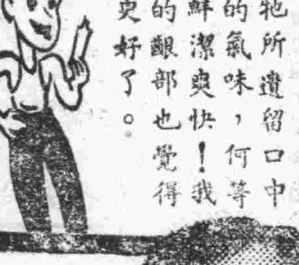 牠所遺留口中
的氣味，何等
鮮潔爽快！我
的齦部也覺得
更好了。